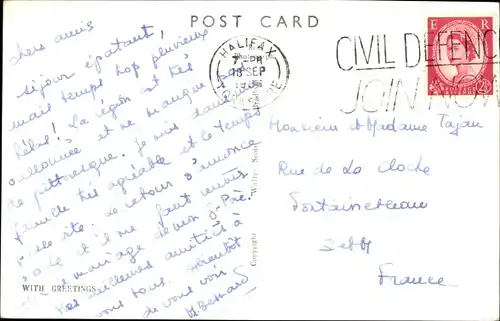 POST CARD
chers amis
séjour épatant!
mais temps trop pluvieux
hélas! La région est très
vallonnée et ne manque pas
de pittoresque. Je suis dans une
famille très agréable et le temps
passe vite: le retour s'annonce
et il me faut revenir
mariage devant
Mes meilleures amitiés à
vous tous.
de vous voir
WITH GREETINGS
Copyright
Walter Scott
HALIFAX
7 - PM
18 SEP
CIVIL DEFENCE
JOIN NOW
E R
Monsieur et Madame Tajan
Rue de La Cloche
Fontainebleau
S et M
France